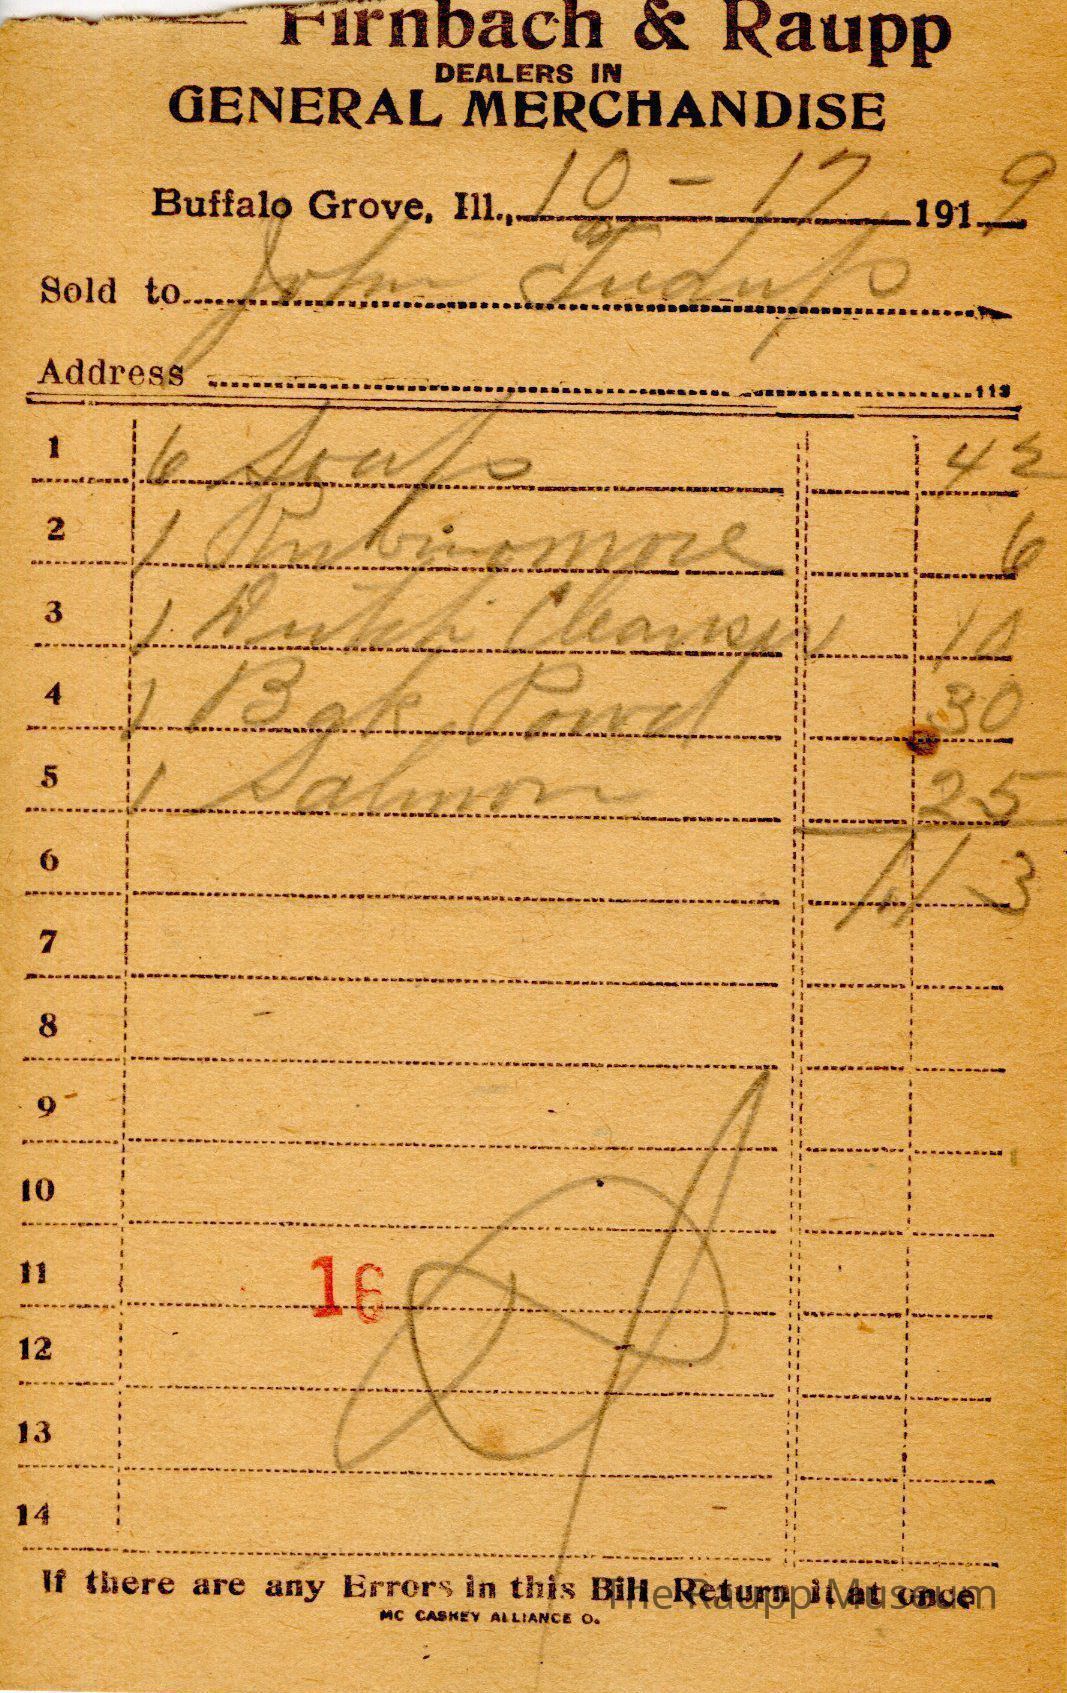 Firnbach & Raupp
DEALERS IN
GENERAL MERCHANDISE
Buffalo Grove, Ill., 10 - 17 1919
Sold to John
Address 113
1 6 Soap 42
2 1 Rubinomore 6
3 1 Dutch Cleanser 10
4 1 Bak Powd 30
5 1 Salmon 25
6 1.13
7
8
9
10
11 16
12
13
14
If there are any Errors in this Bill Return it at once
The Raupp Museum
MC CASKEY ALLIANCE O.